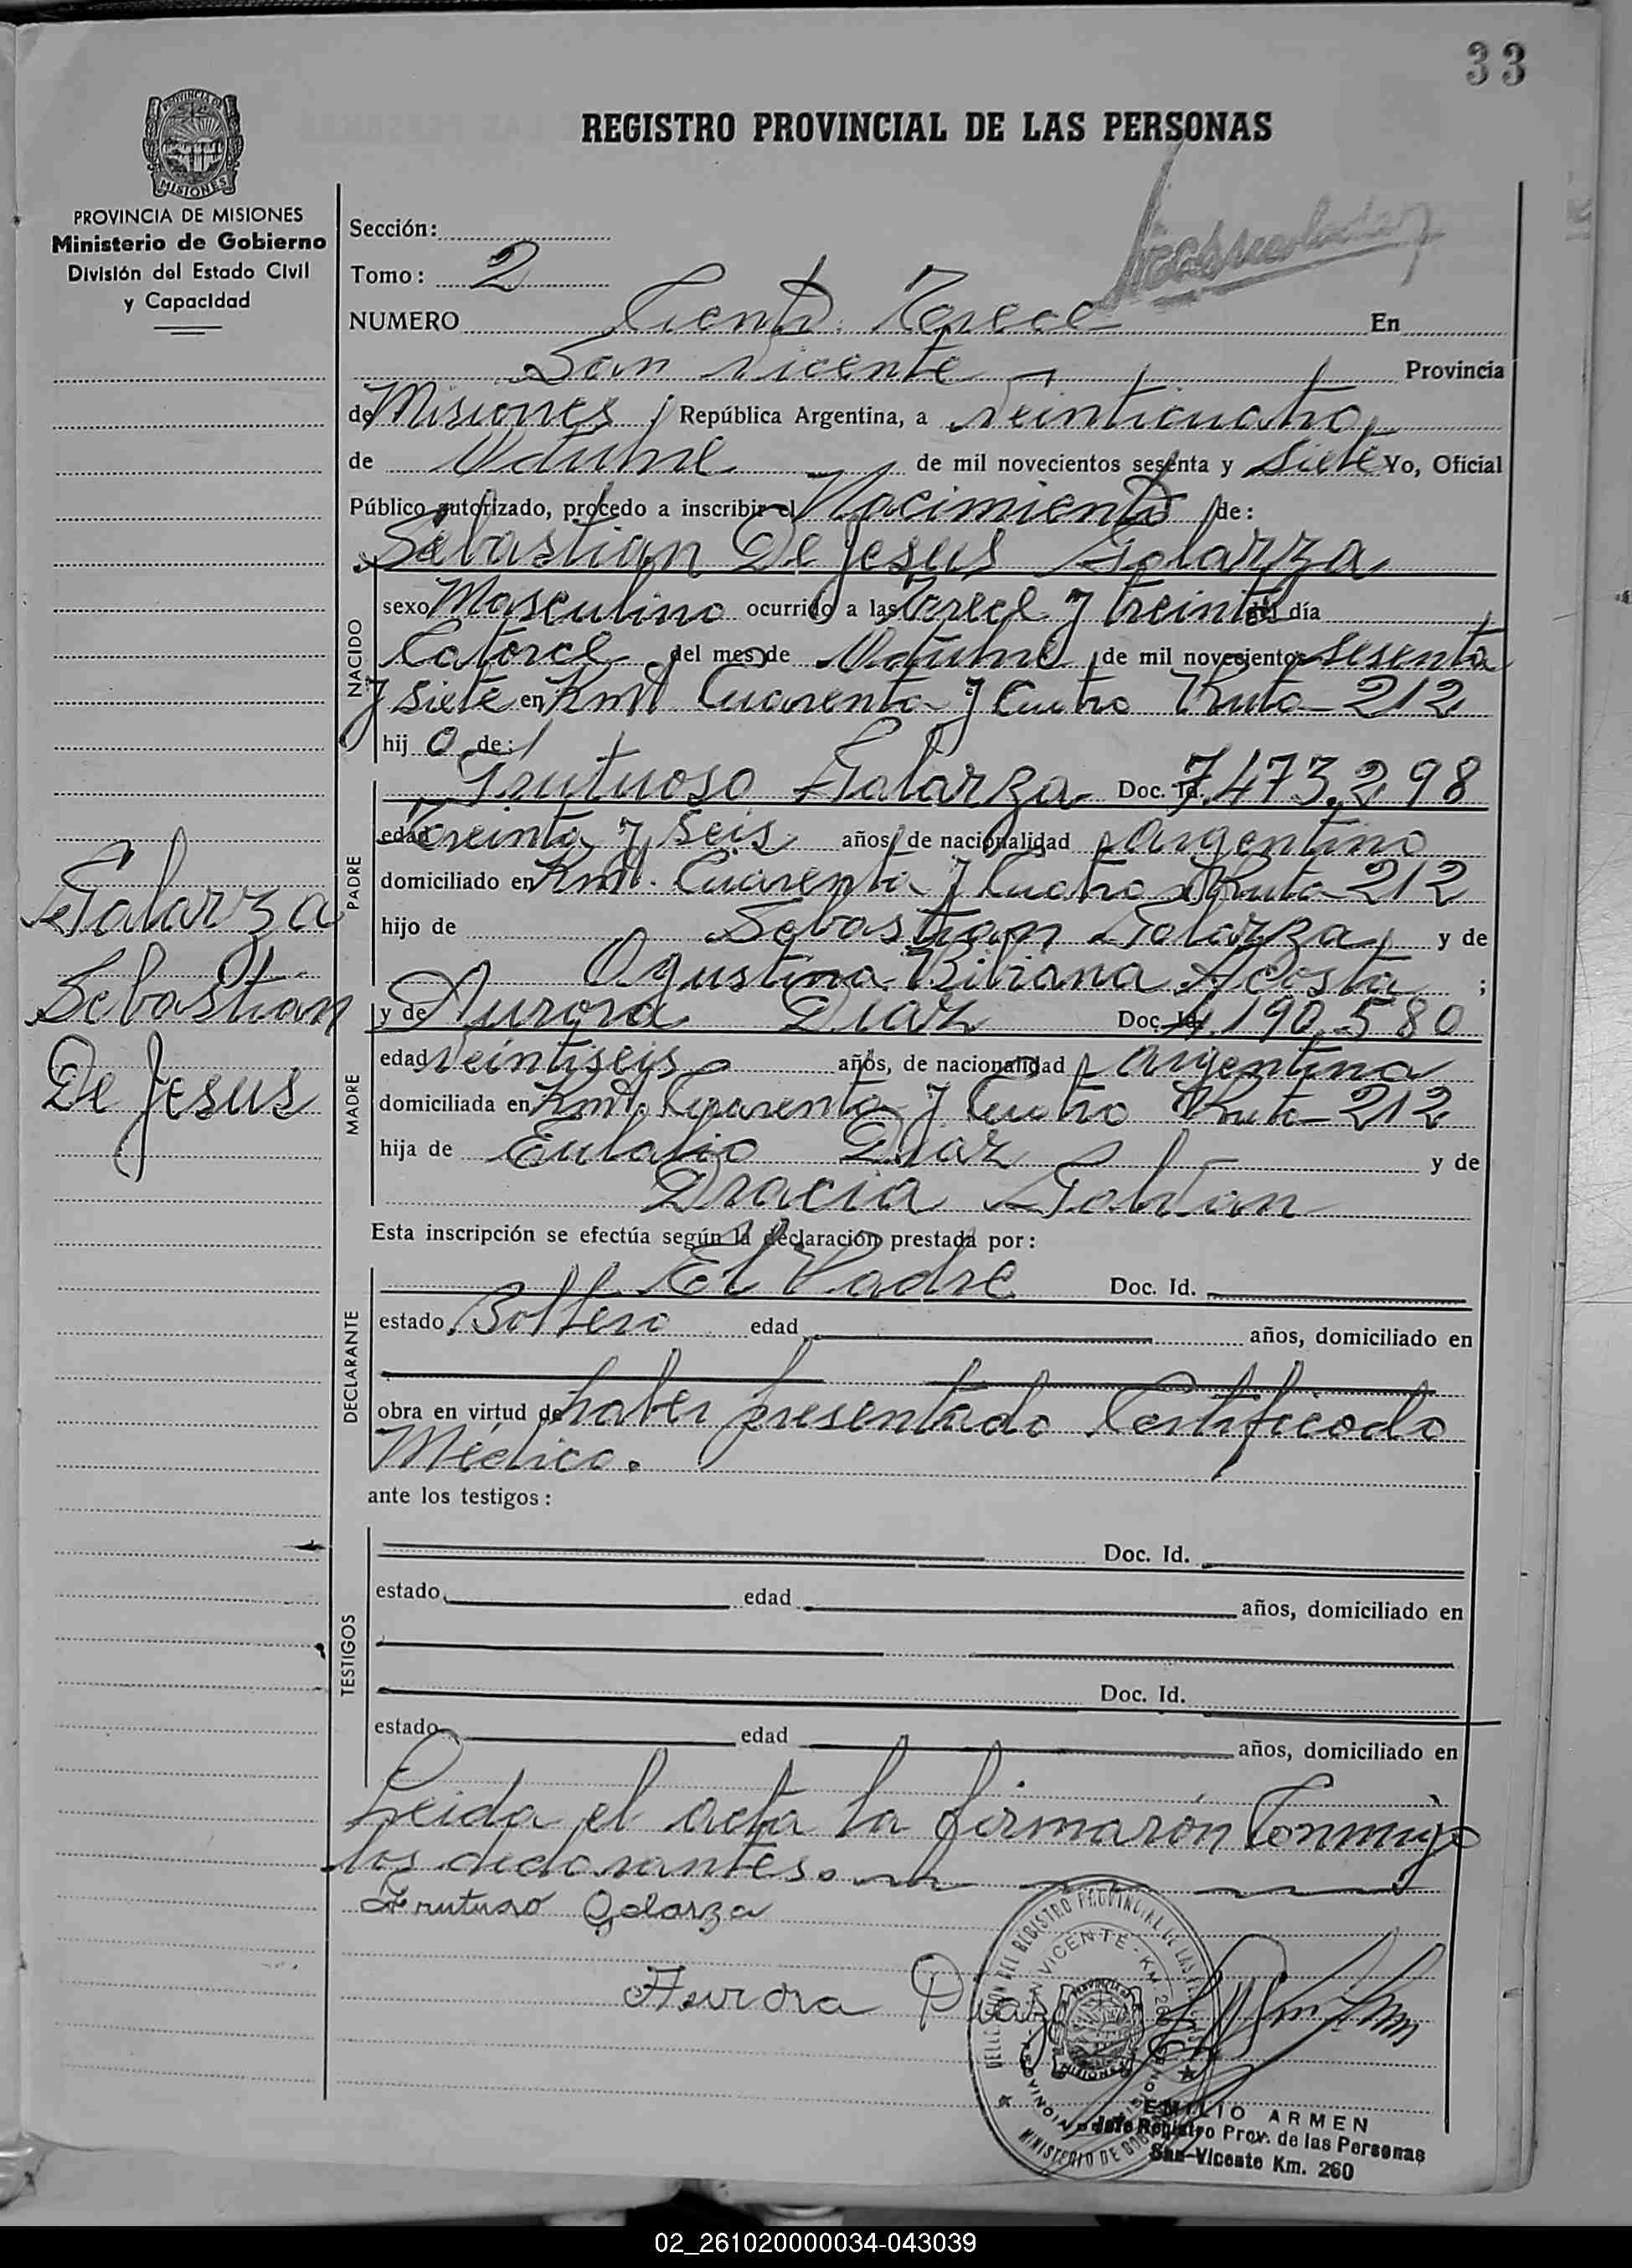 33
REGISTRO PROVINCIAL DE LAS PERSONAS
PROVINCIA DE MISIONES
Ministerio de Gobierno
División del Estado Civil
y Capacidad
Sección:
Tomo: 2
NUMERO Ciento Trece En
San Vicente Provincia
de Misiones República Argentina, a veinticuatro
de Octubre de mil novecientos sesenta y siete Yo, Oficial
Público autorizado, procedo a inscribir el Nacimiento de:
Sebastian De Jesus Galarza
NACIDO
sexo Masculino ocurrido a las Trece y treinta del día
Catorce del mes de Octubre de mil novecientos sesenta
y siete en Kmt Cuarenta y Cuatro Ruta-212
hijo de:
Frutuoso Galarza Doc. Id. 7.473.298
PADRE
edad Treinta y seis años, de nacionalidad Argentino
domiciliado en Kmt. Cuarenta y Cuatro Ruta-212
hijo de Sebastian Galarza y de
Agustina Bibiana Acosta ;
y de Aurora Diaz Doc. Id. 4.190.580
MADRE
edad veintiseis años, de nacionalidad Argentina
domiciliada en Kmt. Cuarenta y Cuatro Ruta-212
hija de Eulalio Diaz y de
Dracia
Galarza
Sebastian
De Jesus
Esta inscripción se efectúa según la declaración prestada por:
DECLARANTE
El Padre Doc. Id.
estado Soltero edad años, domiciliado en
obra en virtud de haber presentado Certificado
Médico.
ante los testigos:
TESTIGOS
Doc. Id.
estado edad años, domiciliado en
Doc. Id.
estado edad años, domiciliado en
Leida el acta la firmarón Conmigo
los declarantes.
Frutuso Galarza
Aurora Diaz
EMILIO ARMEN
Jefe Registro Prov. de las Personas
San-Vicente Km. 260
02_261020000034-043039